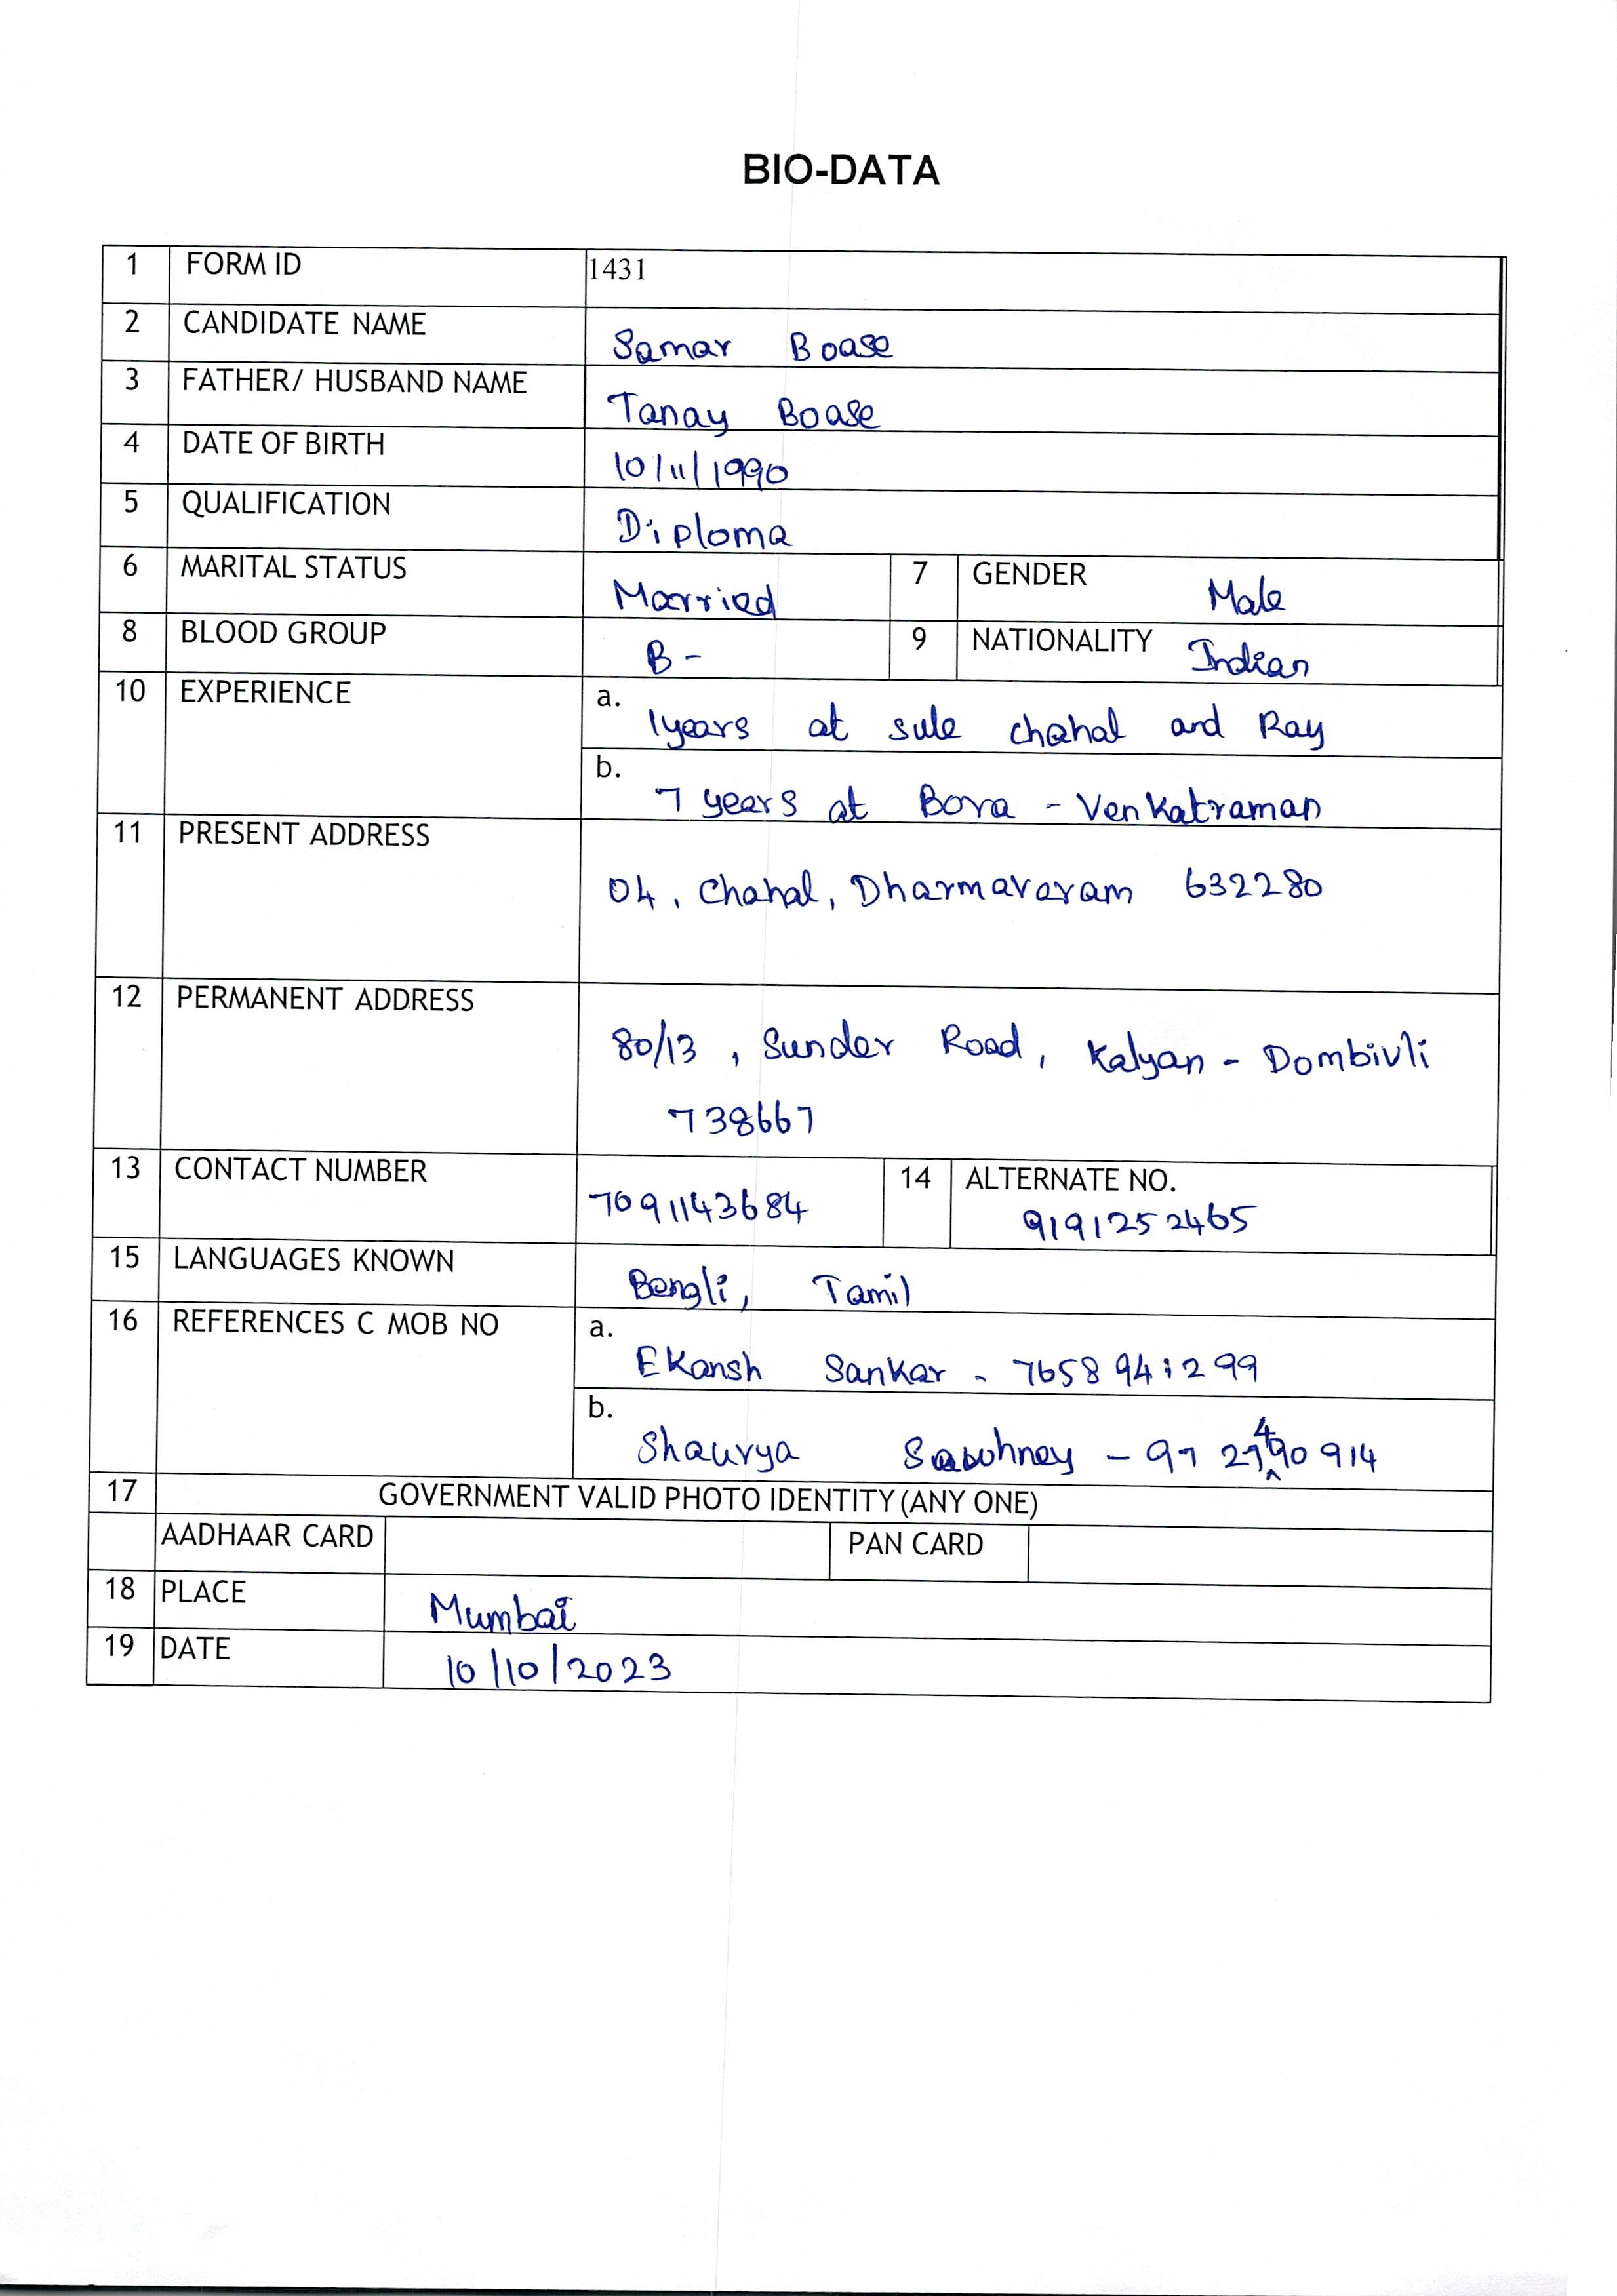 BIO-DATA
1 FORM ID 1431
2 CANDIDATE NAME Samar Boase
3 FATHER/ HUSBAND NAME Tanay Boase
4 DATE OF BIRTH 10/11/1990
5 QUALIFICATION Diploma
6 MARITAL STATUS Married 7 GENDER Male
8 BLOOD GROUP B- 9 NATIONALITY Indian
10 EXPERIENCE a. 1years at sule chahal and Ray
b. 7 years at Bora - Venkatraman
11 PRESENT ADDRESS
04, Chahal, Dharmavaram 632280
12 PERMANENT ADDRESS
80/13, Sunder Road, Kalyan - Dombivli
738667
13 CONTACT NUMBER 7091143684 14 ALTERNATE NO.
9191252465
15 LANGUAGES KNOWN Bengli, Tamil
16 REFERENCES C MOB NO a.
Ekansh Sankar - 7658941299
b.
Shaurya - 97 27490914
17 GOVERNMENT VALID PHOTO IDENTITY (ANY ONE)
AADHAAR CARD PAN CARD
18 PLACE Mumbai
19 DATE 10/10/2023